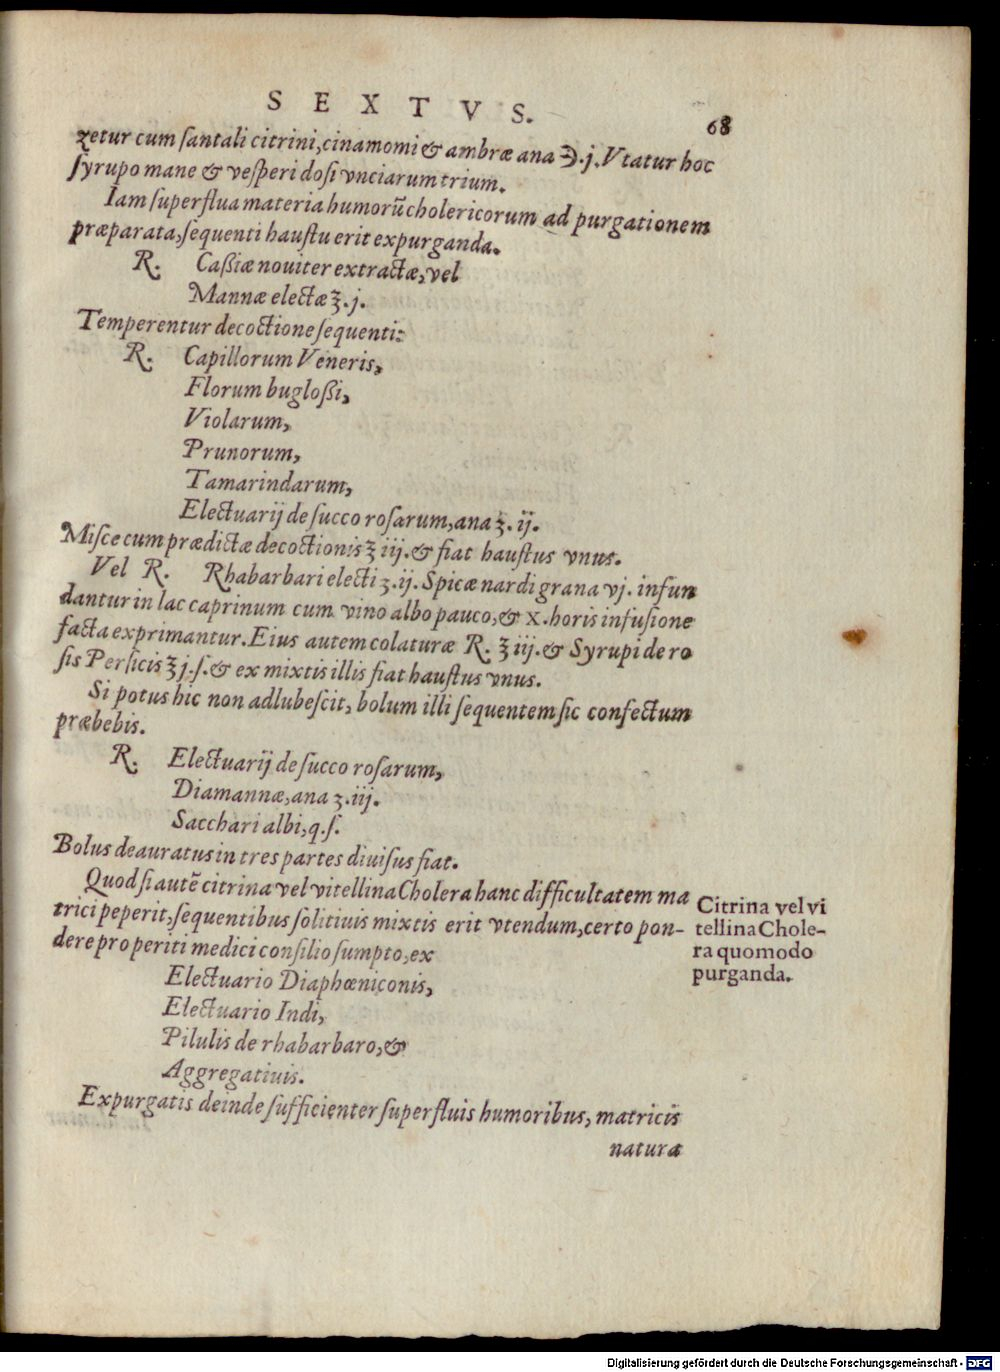 SEXTVS.
68
zetur cum santali citrini, cinamomi & ambræ ana ℈.j. Vtatur hoc
syrupo mane & vesperi dosi vnciarum trium.
Iam superflua materia humorũ cholericorum ad purgationem
præparata, sequenti haustu erit expurganda.
R. Caßiæ nouiter extractæ, vel
Mannæ electæ ℥.j.
Temperentur decoctione sequenti:
R. Capillorum Veneris,
Florum bugloßi,
Violarum,
Prunorum,
Tamarindarum,
Electuarij de succo rosarum, ana ʒ.ij.
Misce cum prædictæ decoctionis ℥ iij. & fiat haustus vnus.
Vel R. Rhabarbari electi ʒ.ij. Spicæ nardi grana vj. infun
dantur in lac caprinum cum vino albo pauco, & x. horis infusione
facta exprimantur. Eius autem colaturæ R. ℥ iij. & Syrupi de ro
sis Persicis ℥ j.s. & ex mixtis illis fiat haustus vnus.
Si potus hic non adlubescit, bolum illi sequentem sic confectum
præbebis.
R. Electuarij de succo rosarum,
Diamannæ, ana ʒ.iij.
Sacchari albi, q.s.
Bolus deauratus in tres partes diuisus fiat.
Quod si autẽ citrina vel vitellina Cholera hanc difficultatem ma
trici peperit, sequentibus solitiuis mixtis erit vtendum, certo pon-
dere pro periti medici consilio sumpto, ex
Citrina vel vi
tellina Chole-
ra quomodo
purganda.
Electuario Diaphœniconis,
Electuario Indi,
Pilulis de rhabarbaro, &
Aggregatiuis.
Expurgatis deinde sufficienter superfluis humoribus, matricis
natura
Digitalisierung gefördert durch die Deutsche Forschungsgemeinschaft - DFG